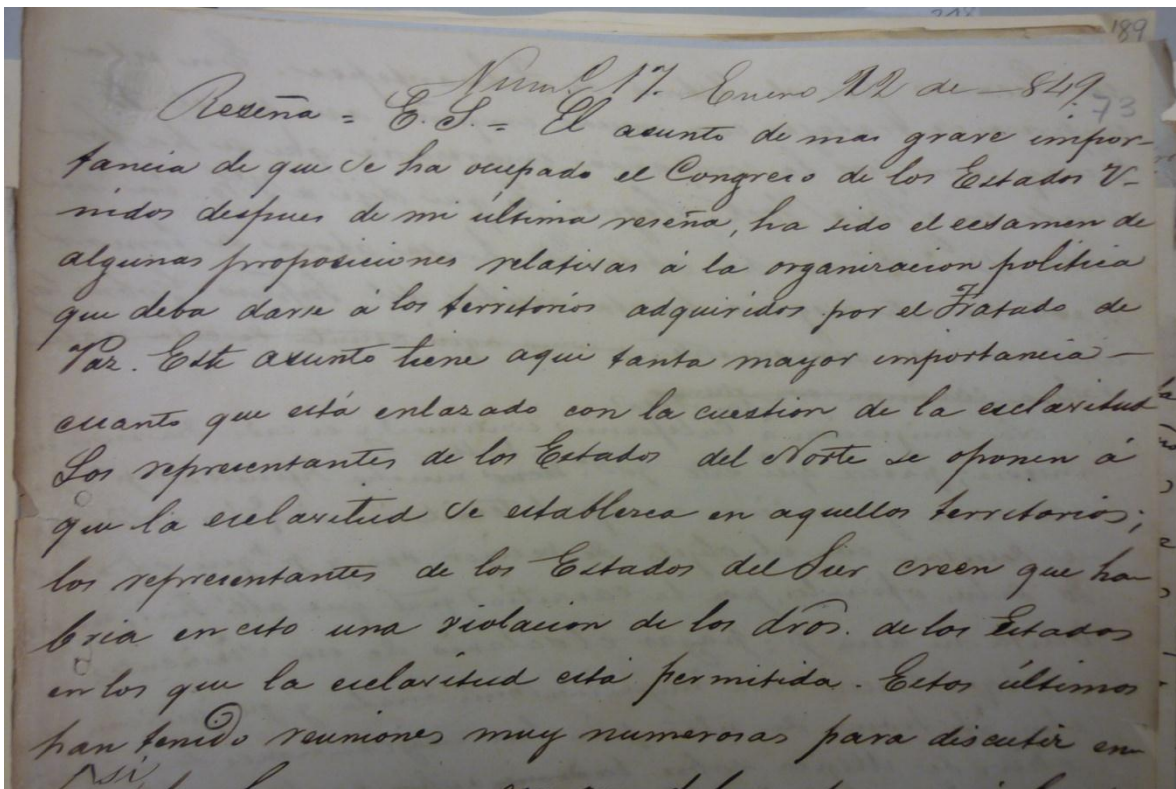 189
Num.º 17. Enero 12 de —849.
73
Reseña = E. S. = El asunto de mas grave impor-
tancia de que se ha ocupado el Congreso de los Estados U-
nidos despues de mi última reseña, ha sido el ecsamen de
algunas proposiciones relativas á la organizacion política
que deba darse á los territorios adquiridos por el Tratado de
Paz. Este asunto tiene aqui tanta mayor importancia —
cuanto que está enlazado con la cuestion de la esclavitud
Los representantes de los Estados del Norte se oponen á
que la esclavitud se establezca en aquellos territorios;
los representantes de los Estados del Sur creen que ha-
bria en esto una violacion de los dros. de los Estados
en los que la esclavitud está permitida. Estos últimos
han tenido reuniones muy numerosas para discutir en-
si